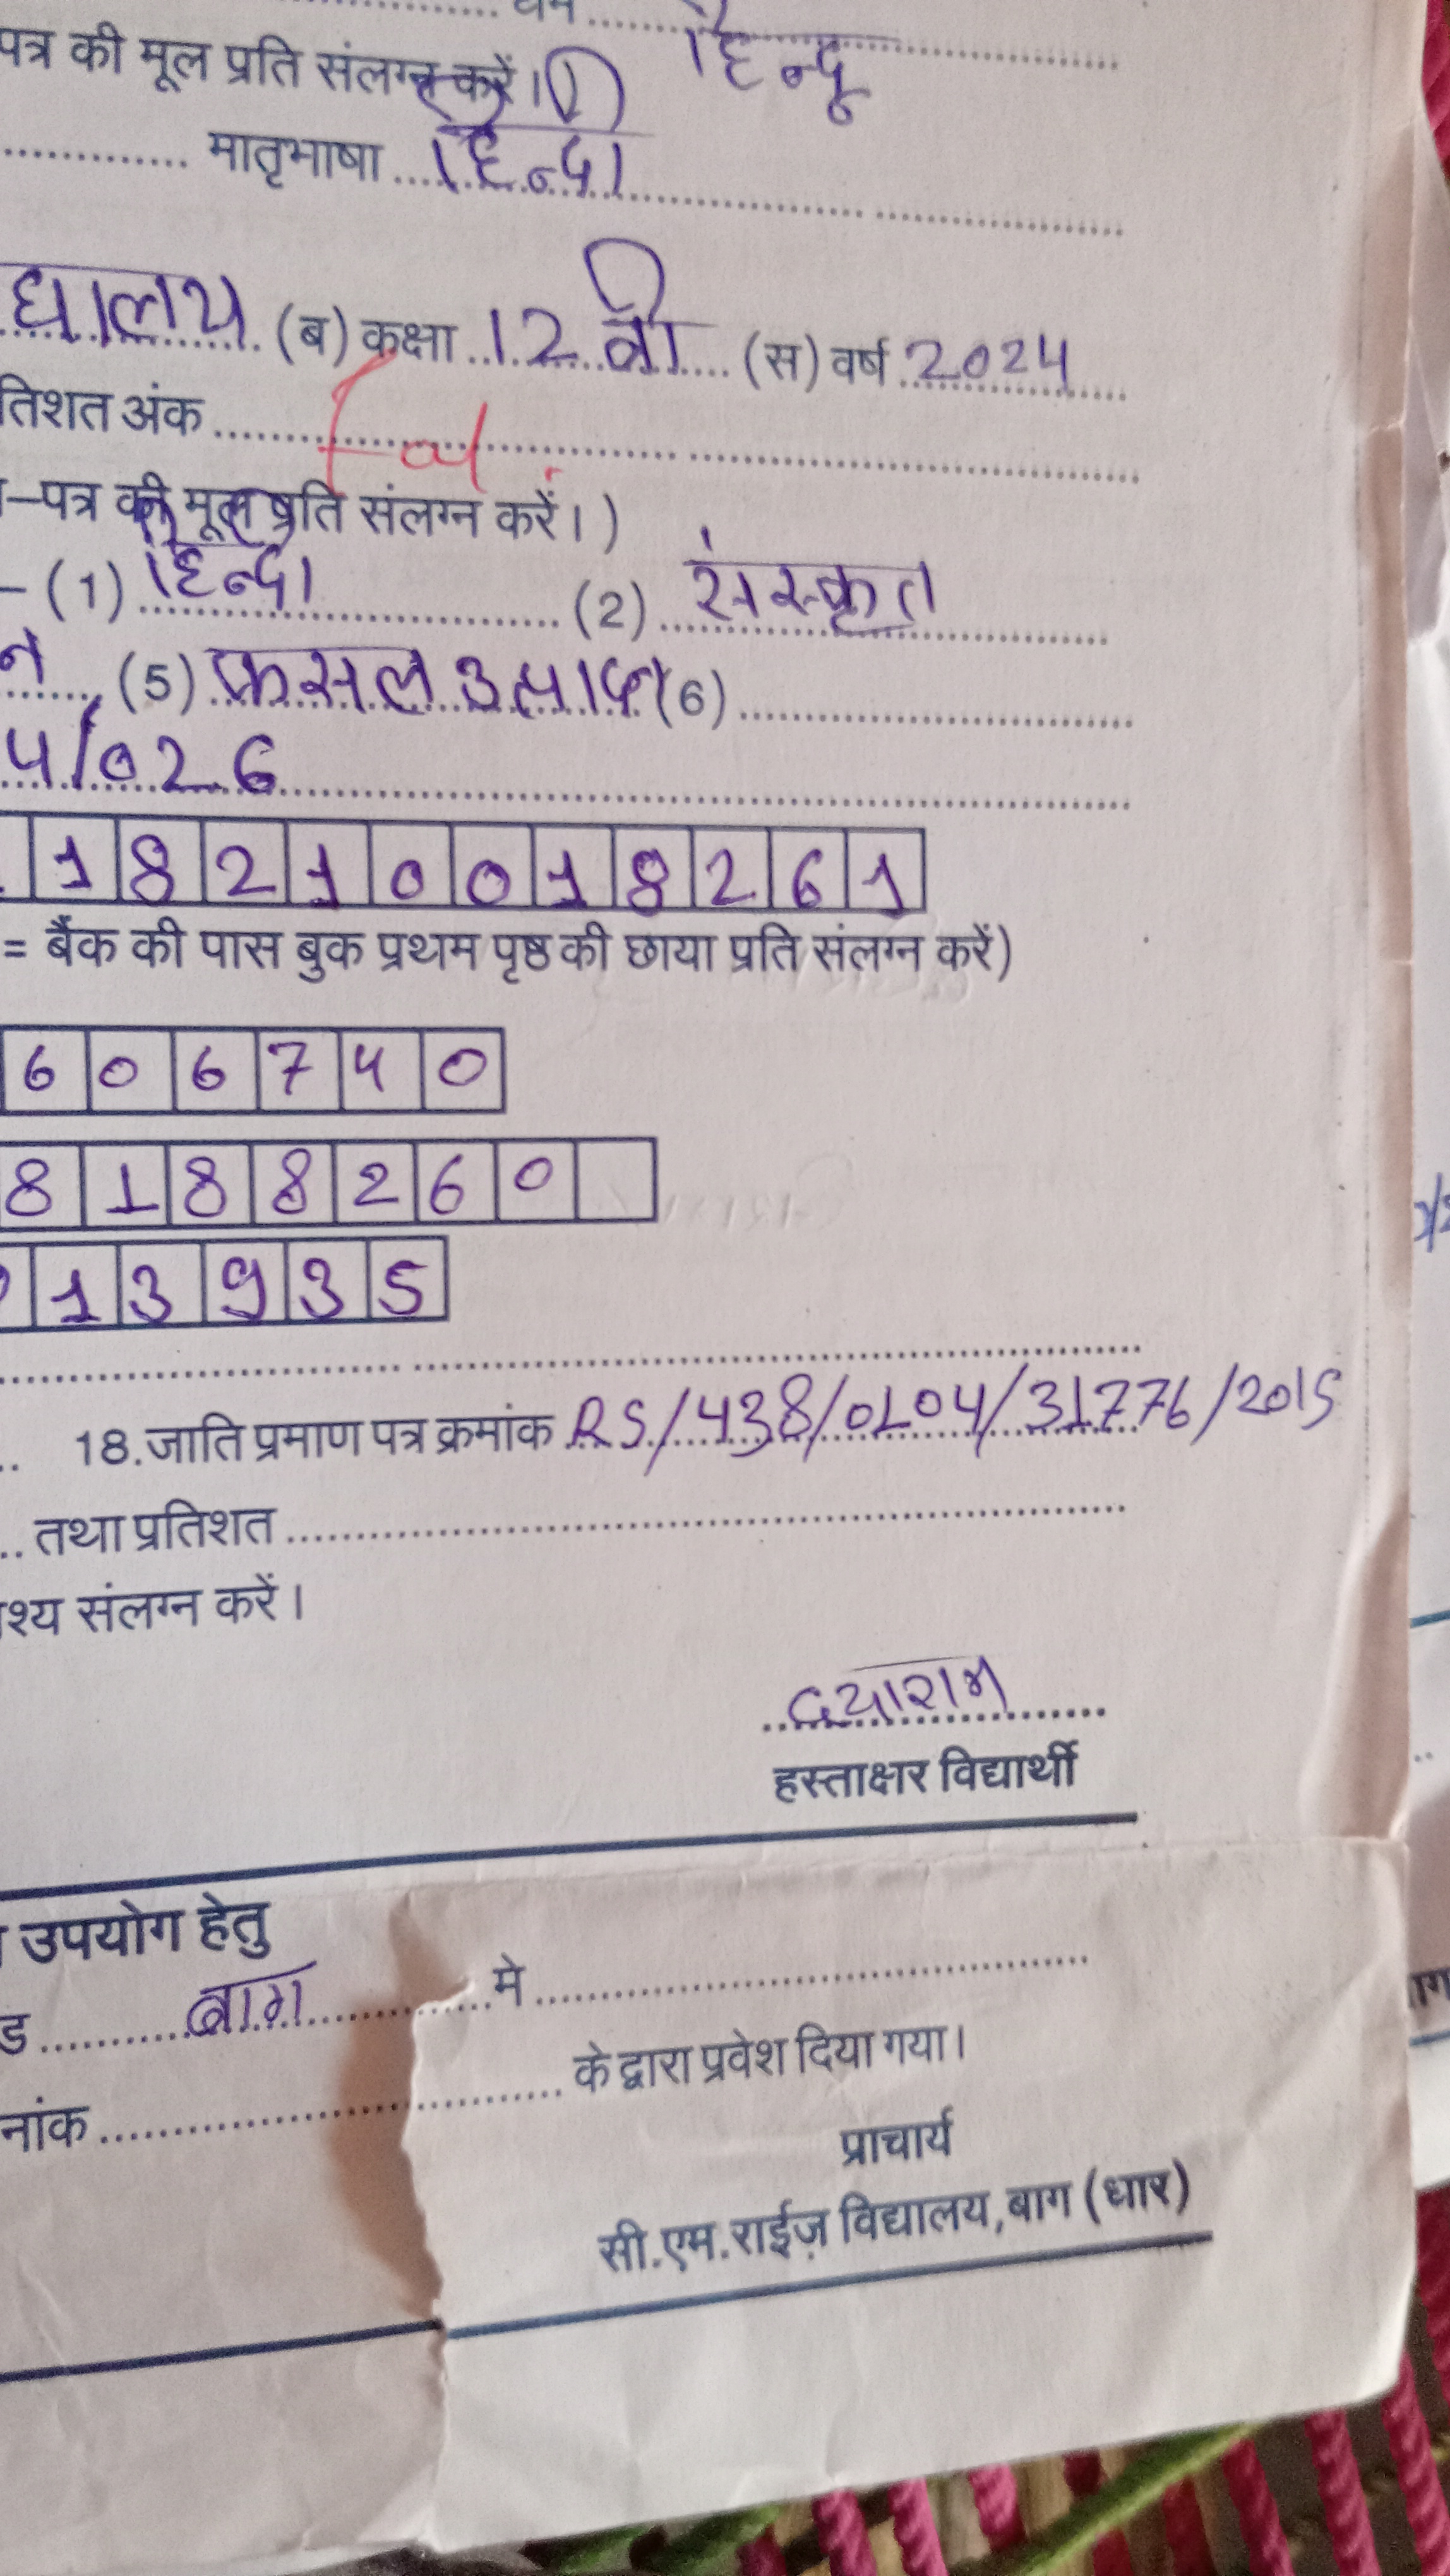 धर्म हिन्दू
पत्र की मूल प्रति संलग्न करें।)
मातृभाषा हिन्दी
द्यालय (ब) कक्षा 12 वी (स) वर्ष 2024
तिशत अंक
-पत्र की मूल प्रति संलग्न करें।)
- (1) हिन्दी (2) संस्कृत
न (5) फसल उत्पादन (6)
4/026
1 8 2 1 0 0 1 8 2 6 1
= बैंक की पास बुक प्रथम पृष्ठ की छाया प्रति संलग्न करें)
6 0 6 7 4 0
8 1 8 8 2 6 0
1 3 9 3 5
18.जाति प्रमाण पत्र क्रमांक RS/438/0104/31776/2015
तथा प्रतिशत
श्य संलग्न करें।
दयाराम
हस्ताक्षर विद्यार्थी
उपयोग हेतु
ड बाग मे
के द्वारा प्रवेश दिया गया।
नांक
प्राचार्य
सी.एम.राईज़ विद्यालय,बाग (धार)